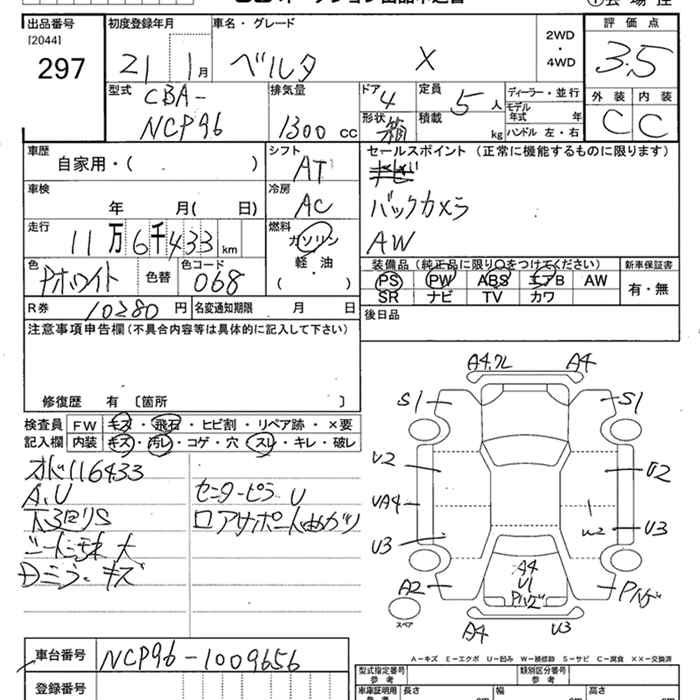 出品番号
[2044]
297
初度登録年月
21 1月
車名・グレード
ベルタ X
2WD
・
4WD
評価点
3.5
型式
CBA-
NCP96
排気量
1300 cc
ドア
4
形状
箱
定員
5人
積載
kg
ディーラー・並行
モデル年式 年
ハンドル 左・右
外装 内装
C C
車歴
自家用・( )
シフト
AT
セールスポイント (正常に機能するものに限ります)
バックカメラ
AW
車検
年 月( 日)
冷房
AC
走行
11万6千433km
燃料
ガソリン
軽・油
( )
色
Pホワイト
色替
色コード
068
装備品(純正品に限り○をつけてください)
PS PW ABS エアB AW
SR ナビ TV カワ
新車保証書
有・無
R券
10280円
名変通知期限 月 日
後日品
注意事項申告欄(不具合内容等は具体的に記入して下さい)
修復歴 有 〔箇所 〕
検査員
記入欄
FW キズ・飛石・ヒビ割・リペア跡・×要
内装 キズ・汚レ・コゲ・穴・スレ・キレ・破レ
オド116433
A.U
下廻りS
シート汚れ大
Dミラーキズ
センターピラU
ロアサポート曲がり
A4.フレ A4
S1 S1
U2 U2
UA4
W2 U3
U3
A4
U1
Pハゲ
A2 Pハゲ
スペア
A4 U3
車台番号
NCP96-1009656
登録番号
A－キズ E－エクボ U－凹み W－補修跡 S－サビ C－腐食 XX－交換済
型式指定番号
参考
類別区分番号
参考
車庫証明用
参考
長さ 幅 高さ